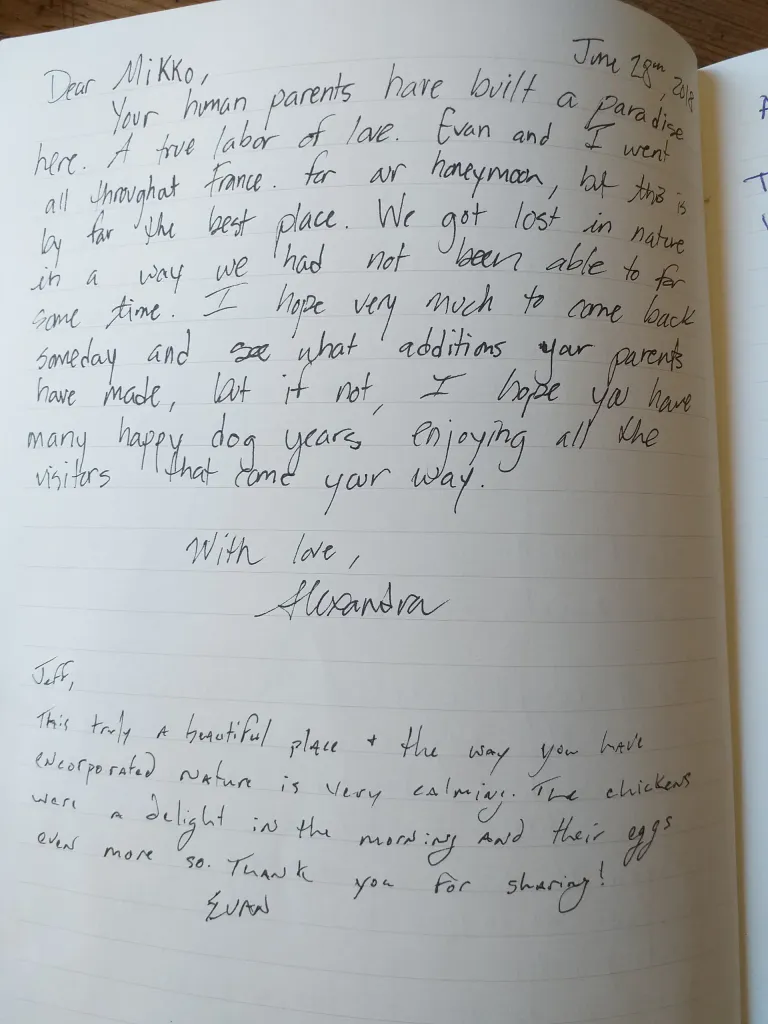 June 28th, 2018
Dear Mikko,
Your human parents have built a paradise
here. A true labor of love. Evan and I went
all throughout France. for our honeymoon, but this is
by far the best place. We got lost in nature
in a way we had not been able to for
some time. I hope very much to come back
someday and see what additions your parents
have made, but if not, I hope you have
many happy dog years enjoying all the
visitors that come your way.
With love,
Alexandra
Jeff,
This truly a beautiful place + the way you have
encorporated nature is very calming. The chickens
were a delight in the morning and their eggs
even more so. Thank you for sharing!
Evan